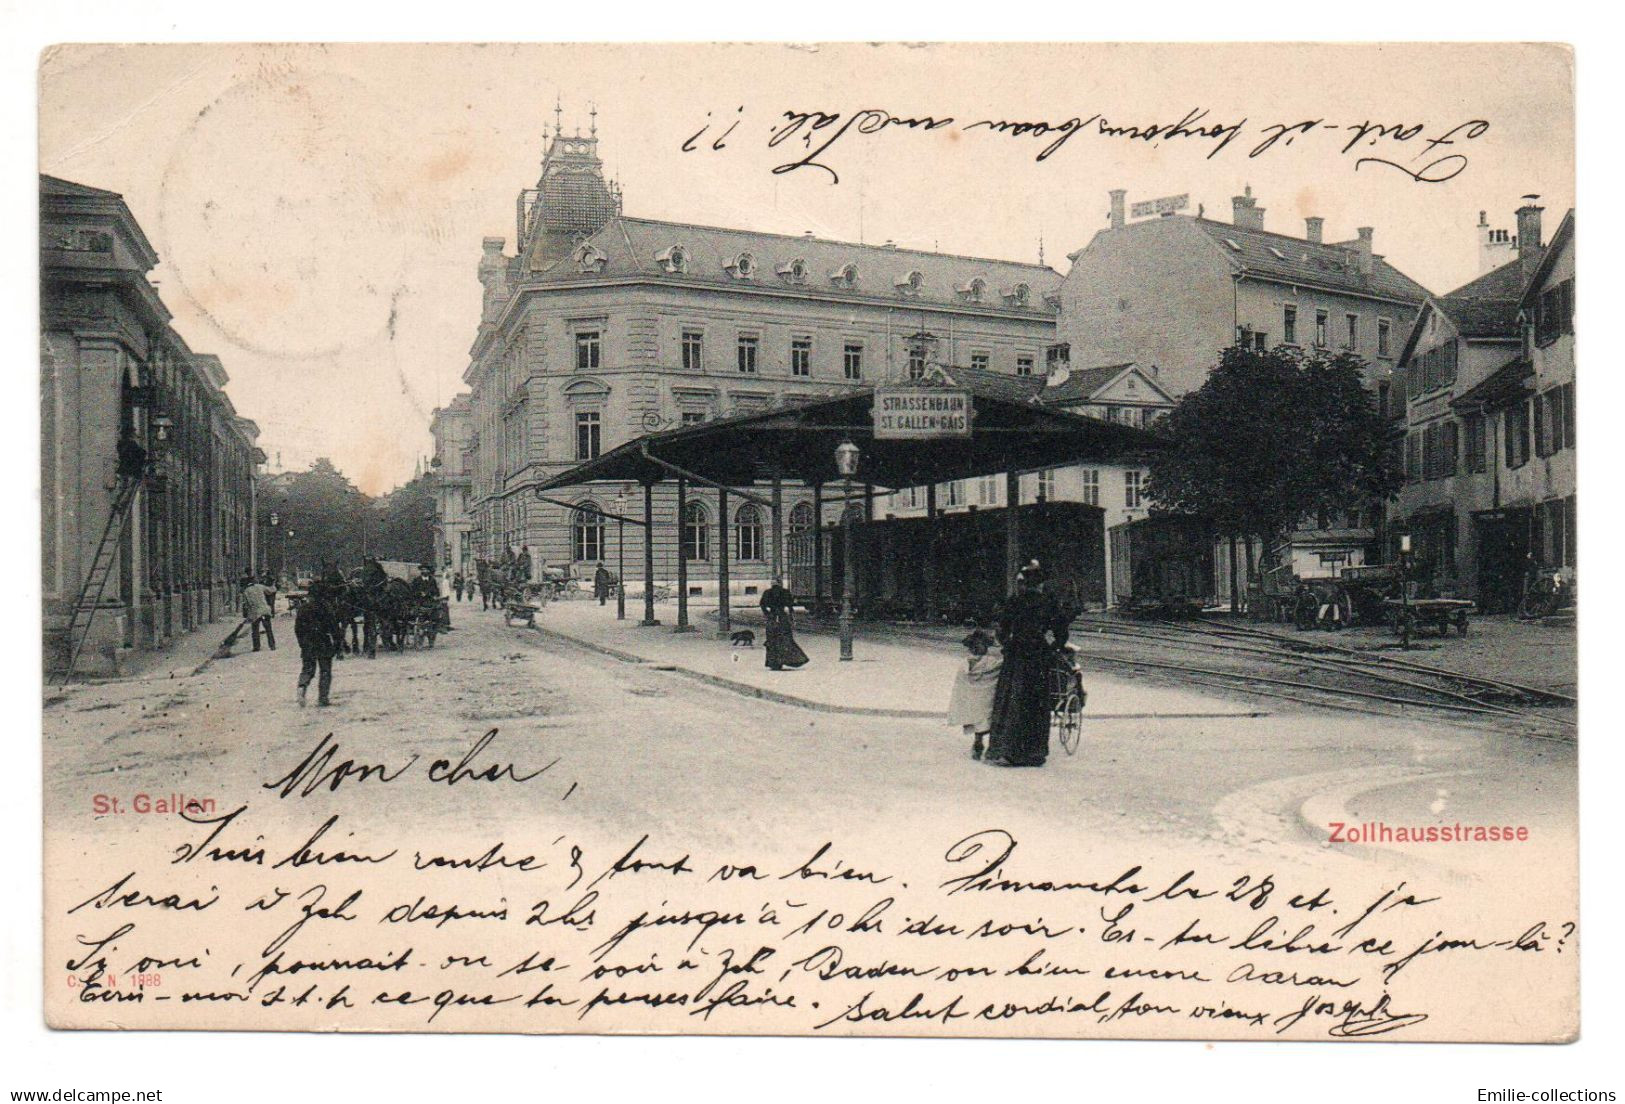 Fait-il toujours beau au Täli ??
HOTEL BAHNHOF
STRASSENBAHN
ST. GALLEN-GAIS
Mon cher,
St. Gallen
Zollhausstrasse
Suis bien rentré & tout va bien. Dimanche le 28 ct. je
serai à Zch depuis 2hs jusqu'à 10 hs du soir. Es-tu libre ce jour-là?
Si oui, pourrait-on se voir à Zch, Baden ou bien encore Aarau?
C. N 1888
Ecris-moi s.t.p ce que tu penses faire. Salut cordial, ton vieux Joseph
Emilie-collections